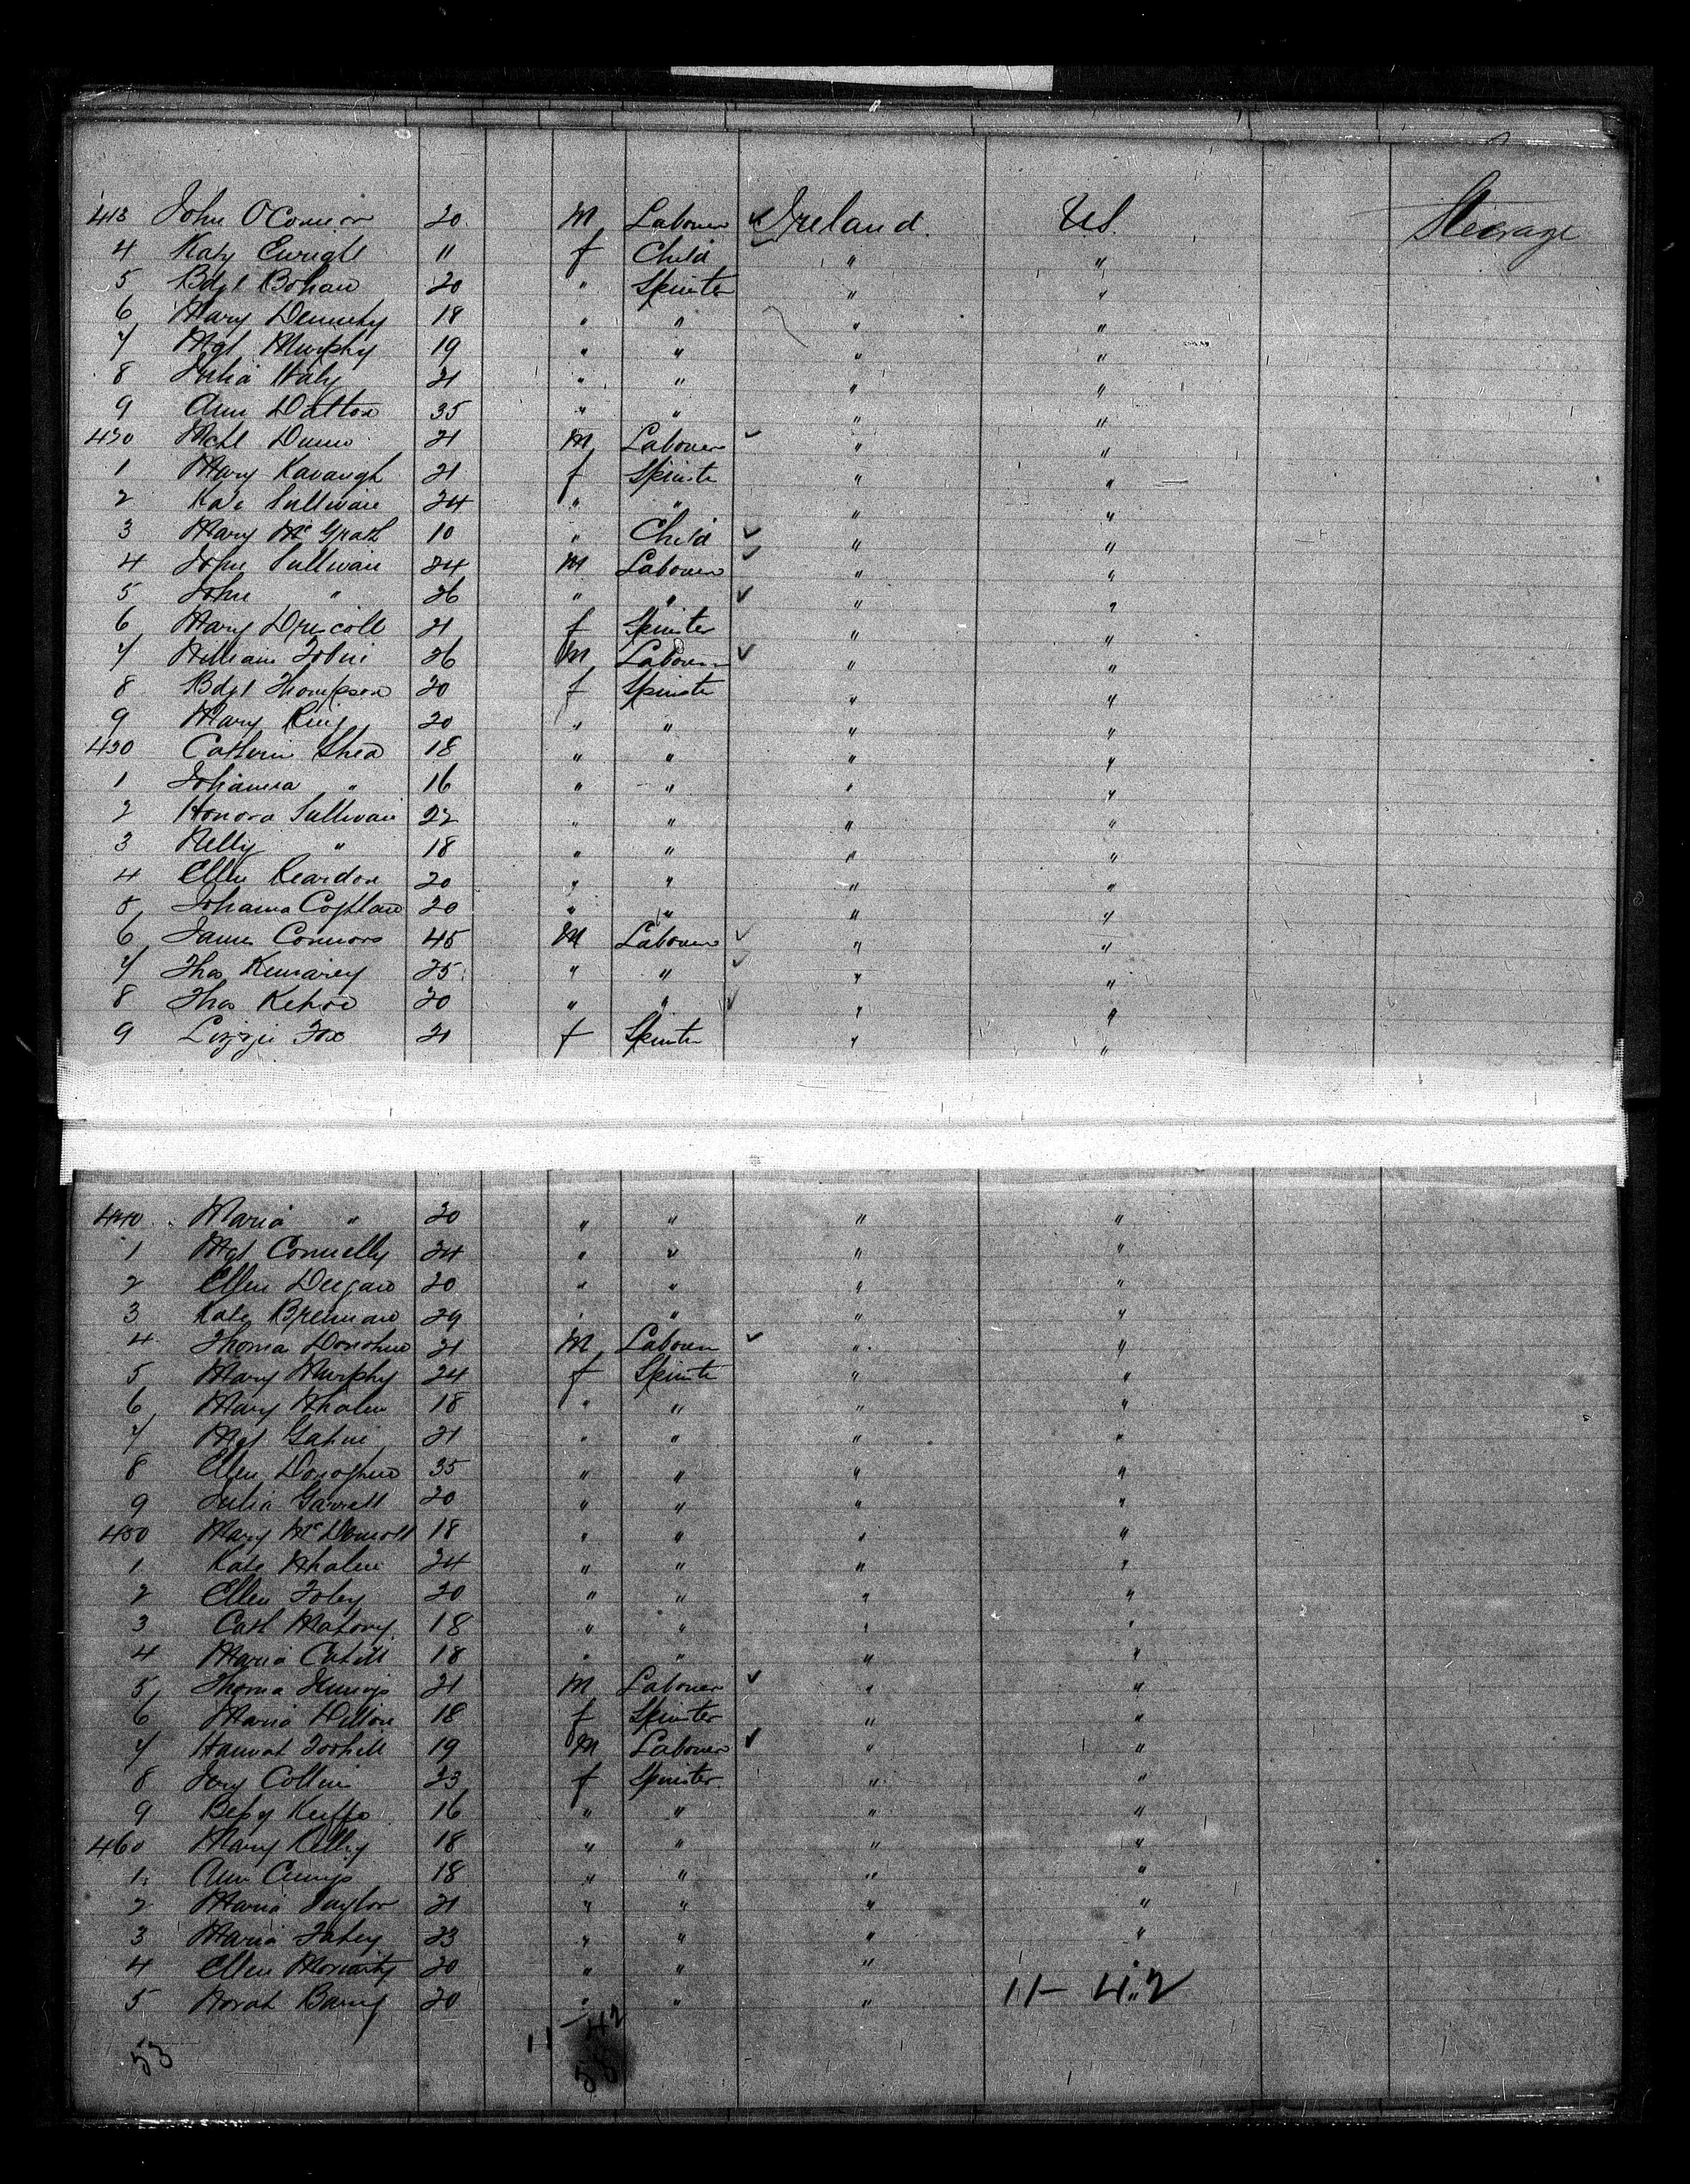 413 John OConnor 20 M Labourer Ireland. U.S. Steerage
4 Katy Enright 11 f Child " "
5 Bdgt Bohan 20 " Spinster " "
6 Mary Dennehy 18 " " " "
7 Mgt Murphy 19 " " " "
8 Julia Haly 21 " " " "
9 Ann Dalton 35 " " " "
420 Mchl Dunn 21 M Labourer " "
1 Mary Kavanagh 21 f Spinster " "
2 Kate Sullivan 24 " " " "
3 Mary McGrath 10 " Child " "
4 John Sullivan 24 M Labourer " "
5 John " 26 " " " "
6 Mary Driscoll 21 f Spinster " "
7 William Tobin 26 M Labourer " "
8 Bdgt Thompson 20 f Spinster " "
9 Mary King 20 " " " "
430 Catherin Shea 18 " " " "
1 Johanna " 16 " " " "
2 Honora Sullivan 22 " " " "
3 Nelly " 18 " " " "
4 Ellen Reardon 20 " " " "
5 Johanna Coghlan 20 " " " "
6 James Connors 45 M Labourer " "
7 Thos 25 " " " "
8 Thos Kehoe 20 " " " "
9 Lizzie Fox 21 f Spinster " "
440 Maria " 20 " " " "
1 Mgt Connelly 24 " " " "
2 Ellen Deegan 20 " " " "
3 Kate Brennan 29 " " " "
4 Thomas Donohue 21 M Labourer " "
5 Mary Murphy 24 f Spinster " "
6 Mary Whalen 18 " " " "
7 Mgt 21 " " " "
8 Ellen Donoghue 35 " " " "
9 Julia Garrett 20 " " " "
450 Mary 18 " " " "
1 Kate Whalen 24 " " " "
2 Ellen Foley 20 " " " "
3 Cath Mahony 18 " " " "
4 Maria Cahill 18 " " " "
5 Thomas 21 M Labourer " "
6 Maria Dillon 18 f Spinster " "
7 Hannah 19 M Labourer " "
8 Jery Collins 23 f Spinster " "
9 Bessy Keeffe 16 " " " "
460 Mary Kelly 18 " " " "
1 Ann 18 " " " "
2 Maria Taylor 21 " " " "
3 Maria Fahey 23 " " " "
4 Ellen Moriarty 20 " " " "
5 Norah Barry 20 " " " "
11-42
11 42
53
53